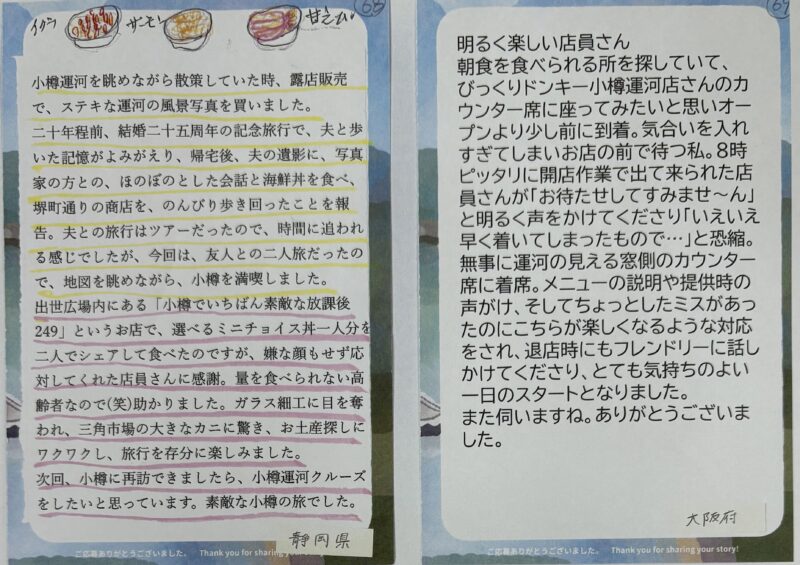 68
イクラ
サーモン
甘えび
小樽運河を眺めながら散策していた時、露店販売
で、ステキな運河の風景写真を買いました。
二十年程前、結婚二十五周年の記念旅行で、夫と歩
いた記憶がよみがえり、帰宅後、夫の遺影に、写真
家の方との、ほのぼのとした会話と海鮮丼を食べ、
堺町通りの商店を、のんびり歩き回ったことを報
告。夫との旅行はツアーだったので、時間に追われ
る感じでしたが、今回は、友人との二人旅だったの
で、地図を眺めながら、小樽を満喫しました。
出世広場内にある「小樽でいちばん素敵な放課後
249」というお店で、選べるミニチョイス丼一人分を
二人でシェアして食べたのですが、嫌な顔もせず応
対してくれた店員さんに感謝。量を食べられない高
齢者なので(笑)助かりました。ガラス細工に目を奪
われ、三角市場の大きなカニに驚き、お土産探しに
ワクワクし、旅行を存分に楽しみました。
次回、小樽に再訪できましたら、小樽運河クルーズ
をしたいと思っています。素敵な小樽の旅でした。
静岡県
ご応募ありがとうございました。 Thank you for sharing your
69
明るく楽しい店員さん
朝食を食べられる所を探していて、
びっくりドンキー小樽運河店さんのカ
ウンター席に座ってみたいと思いオー
プンより少し前に到着。気合いを入れ
すぎてしまいお店の前で待つ私。8時
ピッタリに開店作業で出て来られた店
員さんが「お待たせしてすみませ〜ん」
と明るく声をかけてくださり「いえいえ
早く着いてしまったもので…」と恐縮。
無事に運河の見える窓側のカウンター
席に着席。メニューの説明や提供時の
声がけ、そしてちょっとしたミスがあっ
たのにこちらが楽しくなるような対応
をされ、退店時にもフレンドリーに話し
かけてくださり、とても気持ちのよい
一日のスタートとなりました。
また伺いますね。ありがとうございま
した。
大阪府
ご応募ありがとうございました。 Thank you for sharing your story!